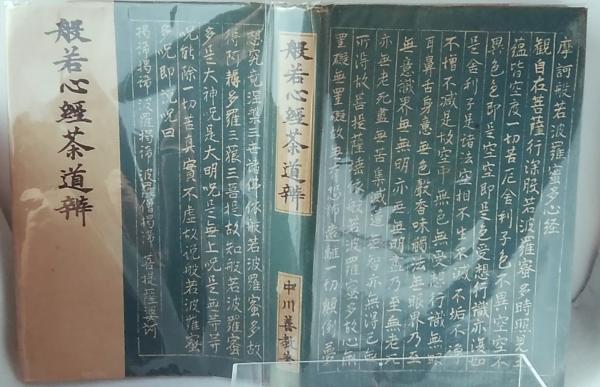 摩訶般若波羅蜜多心経
観自在菩薩行深般若波羅蜜多時照見五
蘊皆空度一切苦厄舎利子色不異空空不
異色色即是空空即是色受想行識亦復如
是舎利子是諸法空相不生不滅不垢不浄
不增不減是故空中無色無受想行識無眼
耳鼻舌身意無色声香味觸法無眼界乃至
無意識界無無明亦無無明盡乃至無老死
亦無老死盡無苦集滅道無智亦無得已無
所得故菩提薩埵依般若波羅蜜多故心無
罣礙無罣礙故無有恐怖遠離一切顛倒夢
般若心經茶道辨
中川善教
想究竟涅槃三世諸仏依般若波羅蜜多故
得阿耨多羅三藐三菩提故知般若波羅蜜
多是大神呪是大明呪是無上呪是無等等
呪能除一切苦真實不虚故説般若波羅蜜
多呪即説呪曰
揭諦揭諦 波羅揭諦 波羅僧揭諦 菩提薩婆訶
般若心經茶道辨